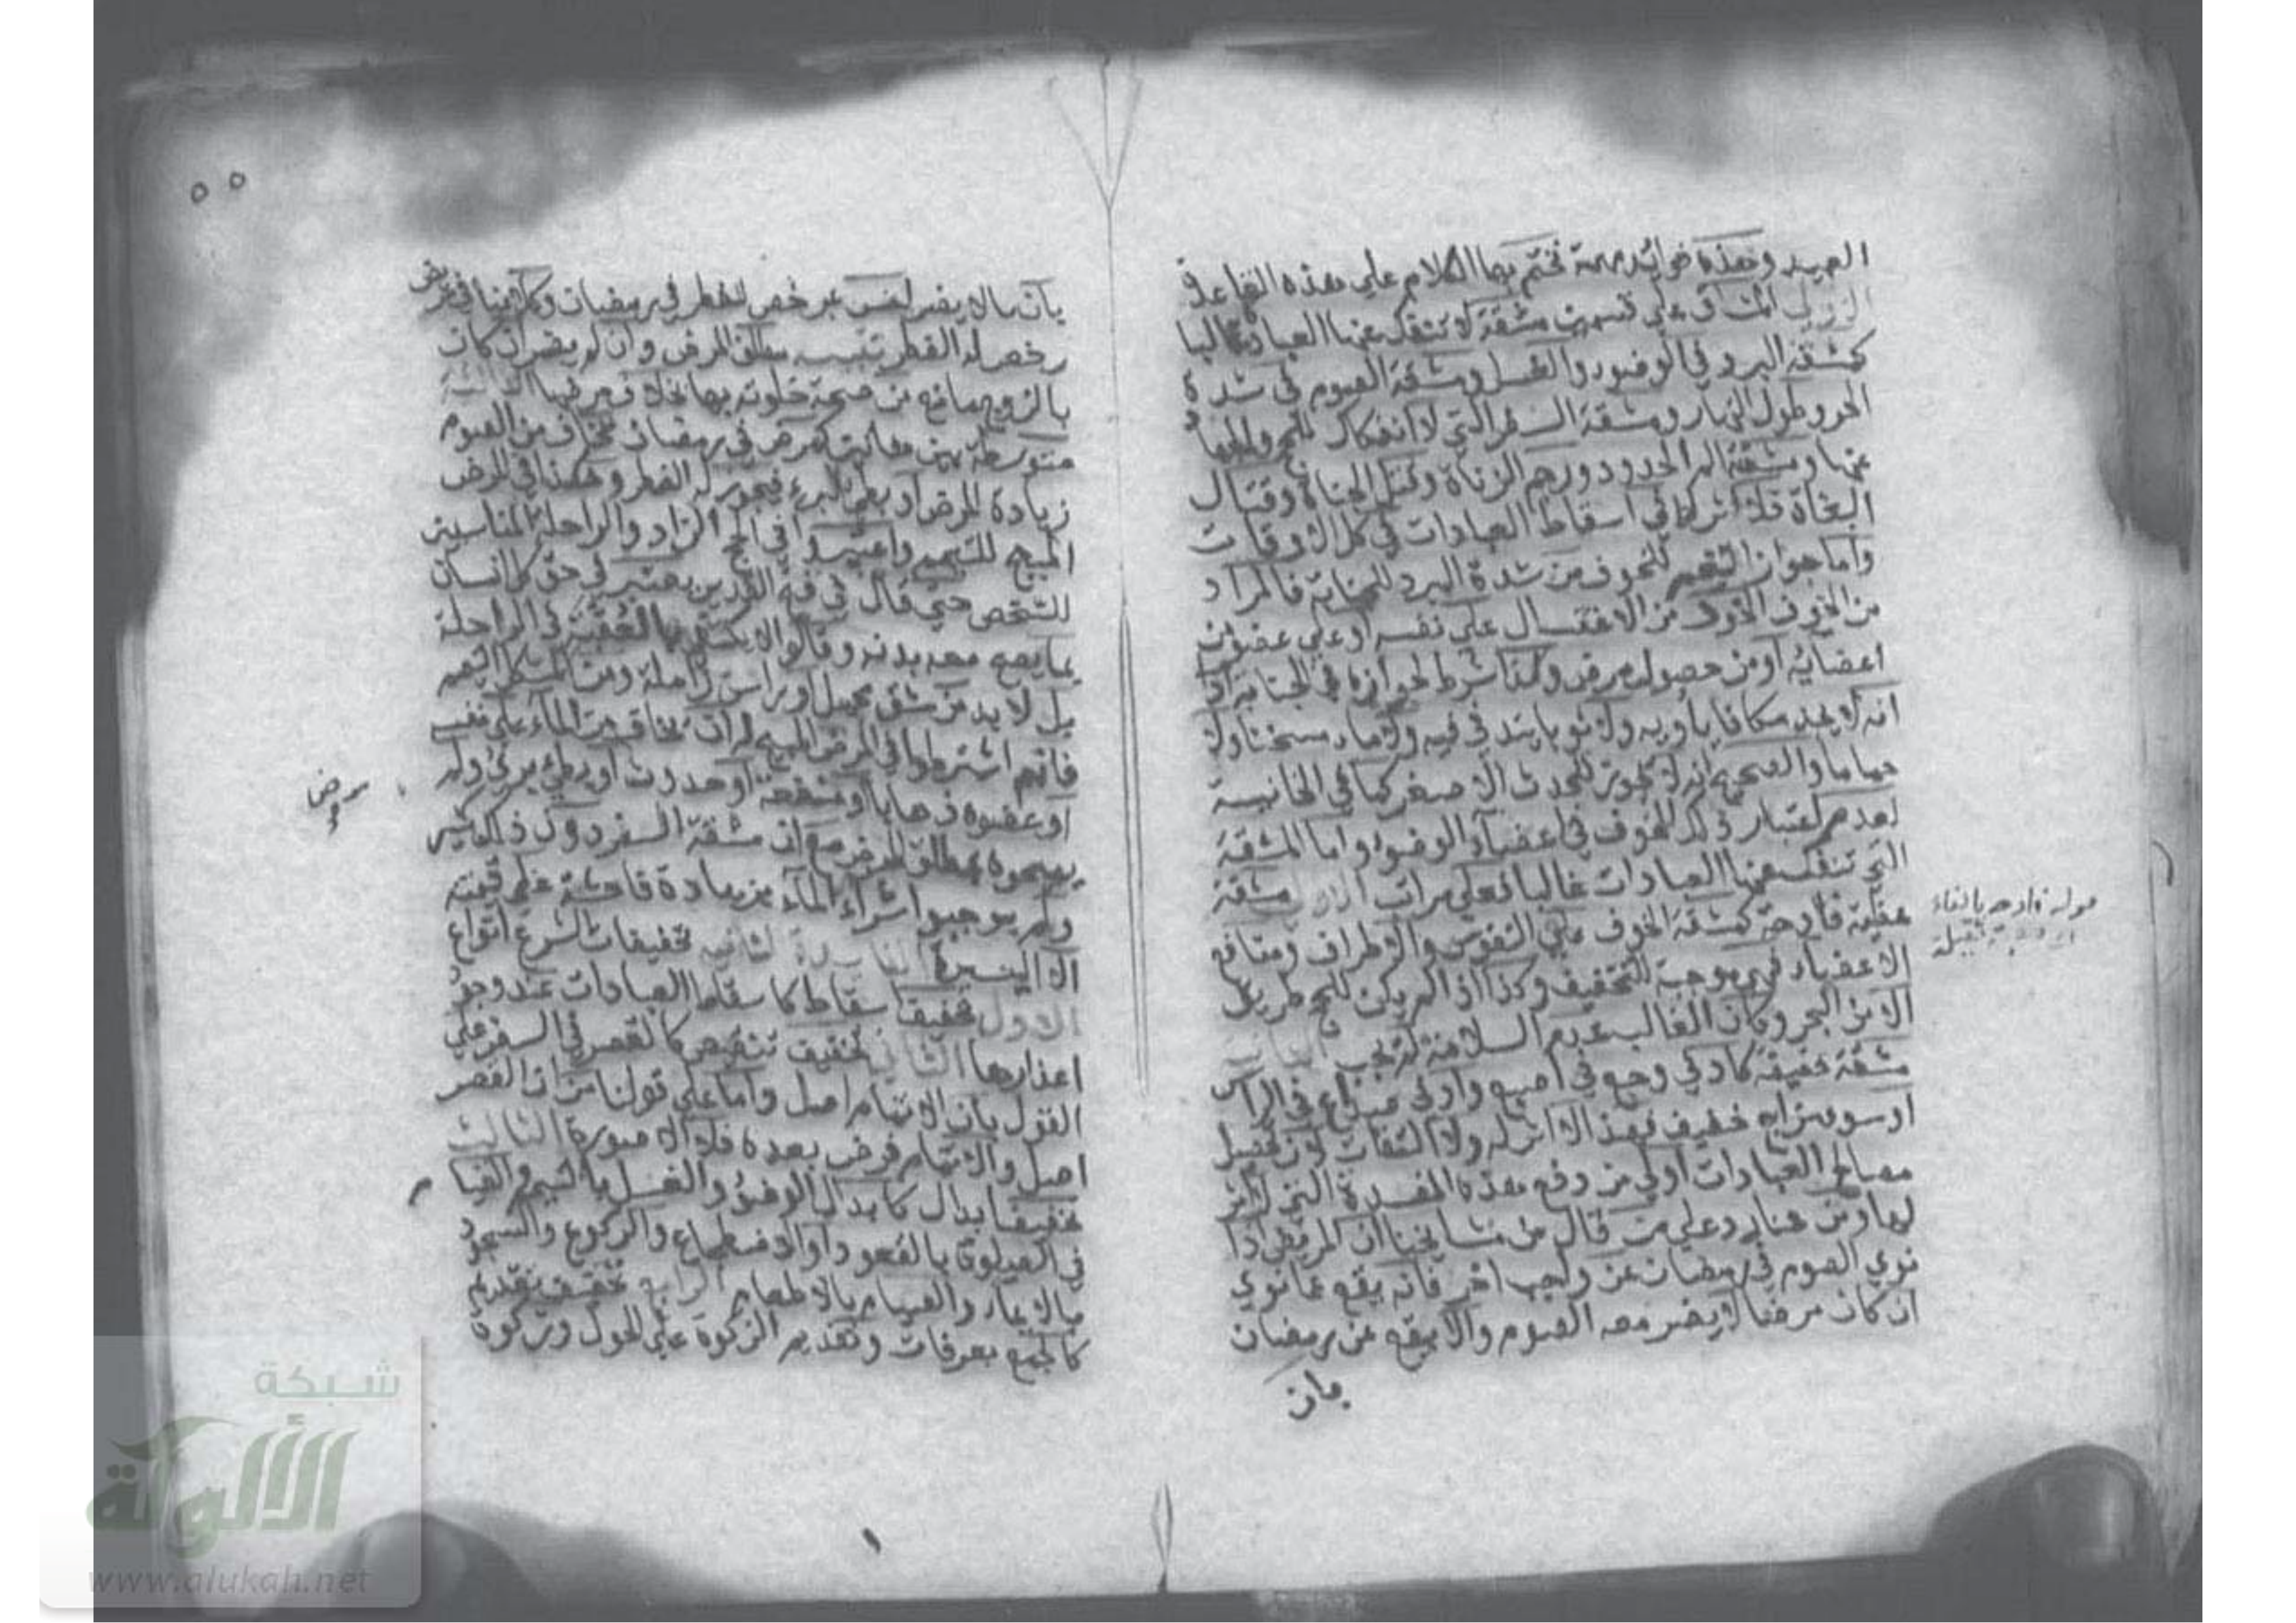 العبيد وهذه فوائد مهمة نختم بها الكلام علي هذه القاعدة
الاولي المشاق علي قسمين مشقة لا تنفك عنها العبادة غالبا
كمشقة البرد في الوضوء والغسل ومشقة الصوم في شدة
الحر وطول النهار ومشقة السفر التي لا انفكاك للحج والجهاد
عنها ومشقة الم الحدود ورجم الزناة وقتل الجناة وقتال
البغاة فلا اثر لها في اسقاط العبادات في كل الاوقات
واما جواز التيمم للخوف من شدة البرد للجنابة فالمراد
من الخوف الخوف من الاغتسال علي نفسه او علي عضو من
اعضائه او من حصول مرض ولذا شرط لجوازه في الجنابة اذا
انه لا يجد مكانا يأويه ولا ثوبا يتد في فيه ولا ماء مسخنا ولا
حماما والصحيح انه لا يجوز للحدث الاصغر كما في الخانية
لعدم اعتبار ذلك الخوف في اعضاء الوضوء واما المشقة
التي تنفك عنها العبادات غالبا فعلي مراتب الاولي مشقة
عظيمة فادحة كمشقة الخوف علي النفوس والاطراف ومنافع
الاعضاء فهي موجبة التخفيف وكذا اذا لم يكن للحج طريق
الا من البحر وكان الغالب عدم السلامة لم يجب الثانية
مشقة خفيفة كادني وجع في اصبع وادني صداع في الراس
او سوء مزاج خفيف فهذا لا اثر له ولا التفات لان تحصيل
مصالح العبادات اولي من دفع هذه المفسدة التي لا اثر
لها ومن هنا رد علي من قال من مشايخنا ان المريض اذا
نوي الصوم في رمضان عن واجب اخر فانه يقع عما نوي
ان كان مرضا لا يضر معه الصوم والا يقع عن رمضان
بان
قوله فادحة بالفاء
ثقيلة
٥٥
بان مالا يضر ليس بمرخص للفطر في رمضان وكلامنا في مريض
رخص له الفطر تنبيه مطلق المرض وان لم يضر ان كان
بالزوج مانع من صحة خلوته بها بخلاف مرضها الثالثة
متوسطة بين هاتين كمرض في رمضان يخاف من الصوم
زيادة المرض او بطء البرء فيجوز له الفطر وهكذا في المرض
المبيح للتيمم واعتبروا في الحج الزاد والراحلة المناسبين
للشخص حتي قال في فتح القدير يعتبر في حق كل انسان
ما يصح معه بدنه وقالوا لا يكتفي بالعقبة في الراحلة
بل لا بد من شق محمل او راس زاملة ومن المشكل التيمم
فانهم اشترطوا في المرض المبيح له ان يخاف من الماء علي نفسه
او عضوه ذهابا او منفعة او حدوث او بطء برئ ولم
مرض
يبيحوه بمطلق المرض مع ان مشقة السفر دون ذلك بكثير
ولم يوجبوا شراء الماء بزيادة فاحشة علي قيمته
لا اليسيرة الفائدة الثانية تخفيفات الشرع انواع
الاول تخفيف اسقاط كاسقاط العبادات عند وجود
اعذارها الثاني تخفيف تنقيص كالقصر في السفر علي
القول بان الاتمام اصل واما علي قولنا من ان القصر
اصل والاتمام فرض بعده فلا الا صورة الثالث
تخفيف ابدال كابدال الوضوء والغسل بالتيمم والقيا
م
في الصلوة بالقعود او الاضطجاع والركوع والسجود
بالايماء والصيام بالاطعام الرابع تخفيف تقديم
كالجمع بعرفات وتقديم الزكوة علي الحول وزكوة
شبكة
الألوكة
www.alukah.net